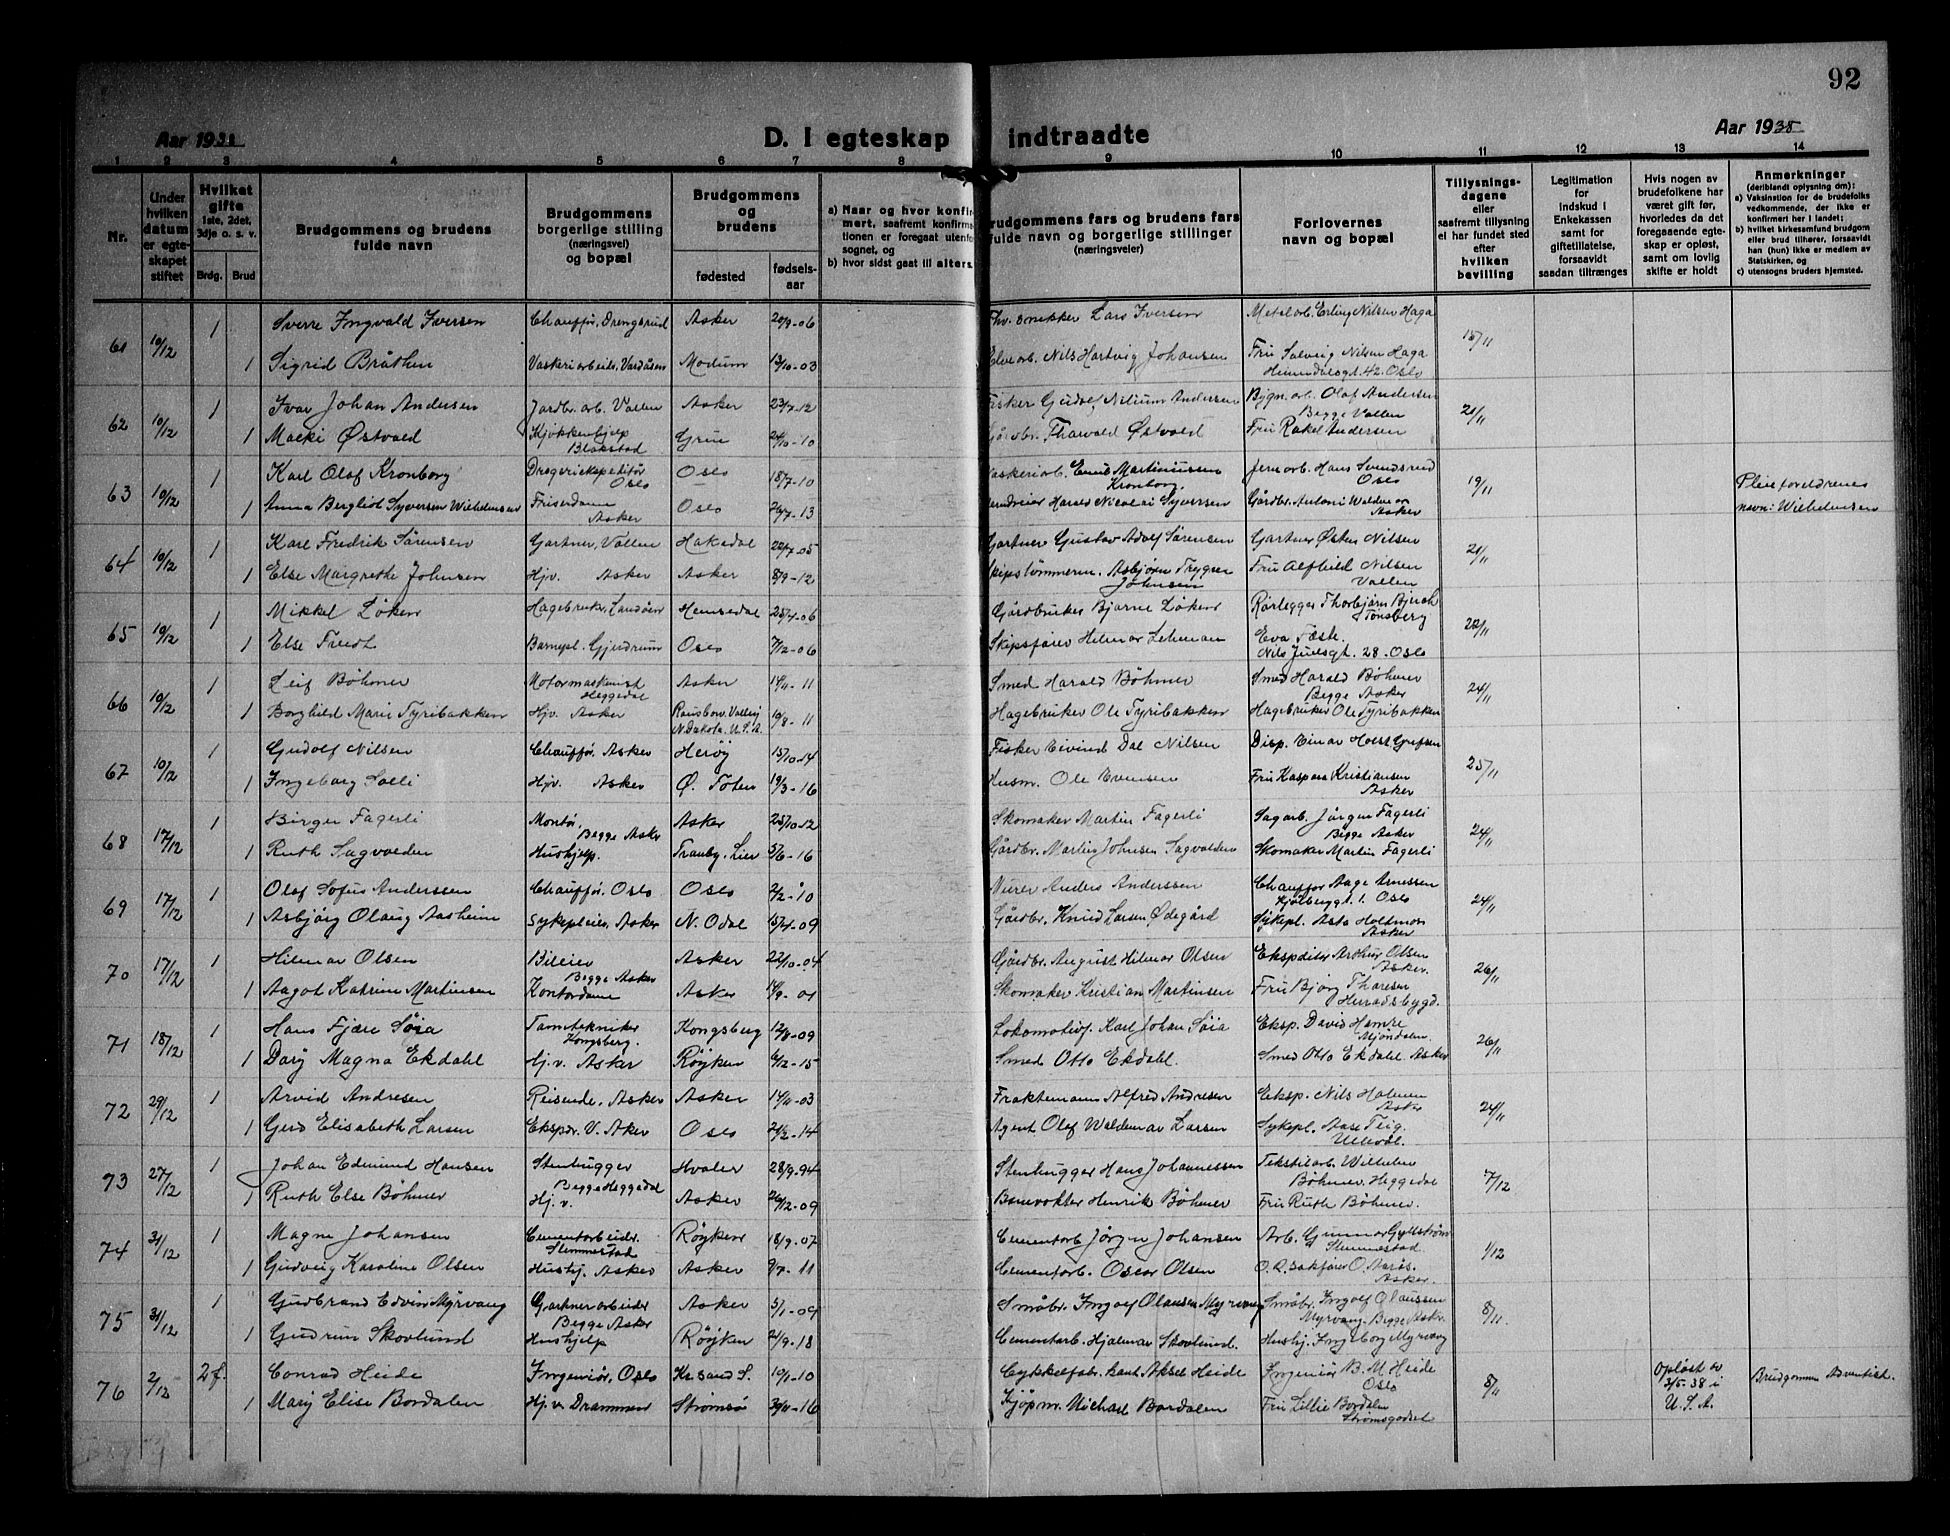 92
Aar 1938
D. I egteskap indtraadte
Aar 1938
1 2 3 4 5 6 7 8 9 10 11 12 13 14
Nr.
Under hvilken datum er egteskapet stiftet
Hvilket gifte 1ste, 2det, 3dje o. s. v.
Brdg. Brud
Brudgommens og brudens fulde navn
Brudgommens borgerlige stilling (næringsvei) og bopæl
Brudgommens og brudens
fødested
fødsels-aar
a) Naar og hvor konfirmert, saafremt konfirmationen er foregaat utenfor sognet, og
b) hvor sidst gaat til alters.
Brudgommens fars og brudens fars fulde navn og borgerlige stillinger (næringsveier)
Forlovernes navn og bopæl
Tillysnings-dagene eller saafremt tillysning ei har fundet sted efter hvilken bevilling
Legitimation for indskud i Enkekassen samt for giftetillatelse, forsaavidt saadan tiltrænges
Hvis nogen av brudefolkene har været gift før, hvorledes da det foregaaende egteskap er opløst, samt om lovlig skifte er holdt
Anmerkninger (deriblandt oplysning om):
a) Vaksination for de brudefolks vedkommende, der ikke er konfirmert her i landet;
b) hvilket kirkesamfund brudgom eller brud tilhører, forsaavidt han (hun) ikke er medlem av Statskirken, og
c) utensogns bruders hjemsted.
61 10/12 1 Sverre Ingvald Iversen Chauffør, Drengsrud Asker 20/9-06 Fhv. snekker Lars Iversen Metalarb. Erling Nilsen Haga 15/11
1 Sigrid Bråthen Vaskeriarbeide, Vardåsen Modum 13/10-03 Elvearb. Nils Hartvig Johansen Fru Solveig Nilsen Haga
Heimdalsgt. 42. Oslo
62 10/12 1 Ivar Johan Andersen Jordbr. arb. Vollen Asker 23/7-12 Fisker Gudolf Nilium Andersen Bygn. arb. Olaf Andersen 21/11
Begge Vollen
1 Macki Østvold Kjøkkenhjelp Grue 24/10-10 Gårdbr. Thorvald Østvold Fru Rakel Andersen
Blakstad
63 10/12 1 Karl Olaf Kronborg Drogeriekspeditør Oslo 18/7-10 Vaskeriarb. Emil Martiniussen Jernarb. Hans Svendsrud 19/11 Pleieforeldrenes
Oslo Kronborg Oslo
1 Anna Bergliot Syversen Wilhelmsen Friserdame Oslo 26/7-13 Harald Nicolai Syversen Gårdbr. Antoni Waldemar navn: Wilhelmsen
Asker Asker
64 10/12 1 Karl Fredrik Sørensen Gartner, Vollen Hakedal 22/7-05 Gartner Gustav Adolf Sørensen Gartner Østen Nilsen 21/11
1 Else Margrethe Johnsen Hjv. Asker Asker 8/9-12 Skipstømmerm. Asbjørn Trygve Fru Alfhild Nilsen
Johnsen Vollen
65 10/12 1 Mikkel Løken Hagebruker, Landøen Hemsedal 25/4-06 Gårdbruker Bjarne Løken Rørlegger Thorbjørn Bjerch 22/11
Tønsberg
1 Else Fredt Barnepl. Gjerdrum Oslo 7/12-06 Skipsfører Hilmar Lehman Eva Tæste.
Nils Juelsgt. 28. Oslo
66 10/12 1 Leif Bøhmer Motormaskinist Asker 14/11-11 Smed Harald Bøhmer Smed Harald Bøhmer 24/11
Heggedal Begge Asker
1 Borghild Marie Tyribakken Hjv. Asker 10/8-11 Hagebruker Ole Tyribakken Hagebruker Ole Tyribakken
N. Dakota. U.S.A.
67 10/12 1 Gudolf Nilsen Chauffør, Asker Herøy 15/10-14 Fisker Eivind Dal Nilsen Disp. Einar Holst Grefsen 25/11
1 Ingeborg Solli Hjv. Asker Ø. Toten 19/3-16 Husm. Ole Evensen Fru Kaspara Kristiansen
Asker
68 17/12 1 Birger Fagerli Montør Asker 25/10-12 Skomaker Martin Fagerli Sagarb. Jørgen Fagerli 24/11
Begge Asker Begge Asker
1 Ruth Sagvolden Hushjelp. Tranby, Lier 5/6-16 Gårdbr. Martin Johnsen Sagvolden Skomaker Martin Fagerli
69 17/12 1 Olaf Sofus Anderssen Chauffør, Oslo Oslo 2/2-10 Murer Anders Anderssen Chauffør Aage Arnessen 24/11
Kjølberggt. 1. Oslo
1 Asbjørg Olaug Aasheim Sykepleier, Asker N. Odal 15/4-09 Gårdbr. Knud Larsen Ødegård Sykepl. Asta Holtmon
Asker
70 17/12 1 Hilmar Olsen Bileier Asker 22/10-04 Gårdbr. August Hilmar Olsen Ekspeditør Arthur Olsen 26/11
Begge Asker Asker.
1 Aagot Katrine Martinsen Kontordame Asker 14/9-01 Skomaker Kristian Martinsen Fru Bjørg Thoresen
Herradsbygd.
71 18/12 1 Hans Fjære Søia Tanntekniker Kongsberg 12/8-09 Lokomotivf. Karl Johan Søia Eksp. David Hamre 26/11
Kongsberg. Mjøndalen.
1 Dary Magna Ekdahl Hj.v. Asker Røyken 6/12-15 Smed Otto Ekdahl. Smed Otto Ekdahl Asker
72 29/12 1 Arvid Andresen Reisende, Asker Asker 14/11-03 Fraktemann Alfred Andresen Eksp. Nils Holmen 24/11
Asker
1 Gerd Elisabeth Larsen Ekspdr. V. Aker Oslo 24/2-14 Agent Olaf Waldemar Larsen Sykepl. Aase Teig.
Ullevål.
73 27/12 1 Johan Edmund Hansen Stenhugger Hvaler 28/9-94 Stenhugger Hans Johannessen Tekstilarb. Wilhelm 7/12
Begge Heggedal Bøhmer. Heggedal
1 Ruth Else Bøhmer Hj. v. Asker 26/12-09 Banevokter Henrik Bøhmer Fru Ruth Bøhmer.
74 31/12 1 Magne Johansen Cementarbeider Røyken 18/9-07 Cementarb Jørgen Johansen Arb. Gunnar Gyllstrøm 1/12
Slemmestad Slemmestad.
1 Gudveig Karoline Olsen Hushj. Asker Asker 9/7-11 Cementarb. Oscar Olsen O.R. sakfører O. Aarøs.
Asker.
75 31/12 1 Gudbrand Edvin Myrvang Gartnerarbeider Asker 5/1-09 Småbr. Ingolf Olaussen Myrvang Småbr. Ingolf Olaussen 8/11
Begge Asker Myrvang. Begge Asker.
1 Gudrun Skovlund Hushjelp Røyken 21/9-18 Cementarb. Hjalmar Skovlund. Hushj. Ingeborg Myrvang
76 2/12 2 f. Conrad Heide Ingeniør, Oslo Kr.sand S. 19/1-10 Cykkelfabrikant Aksel Heide Ingeniør B. M. Heide 8/11 Opløst av Brudgommen Adventist.
Oslo 3/5-38 i
1 Mary Elise Bordalen Hj.v. Drammen Strømsø 30/11-16 Kjøpm. Michael Bordalen Fru Lillie Bordalen U.S.A.
Strømsgodset